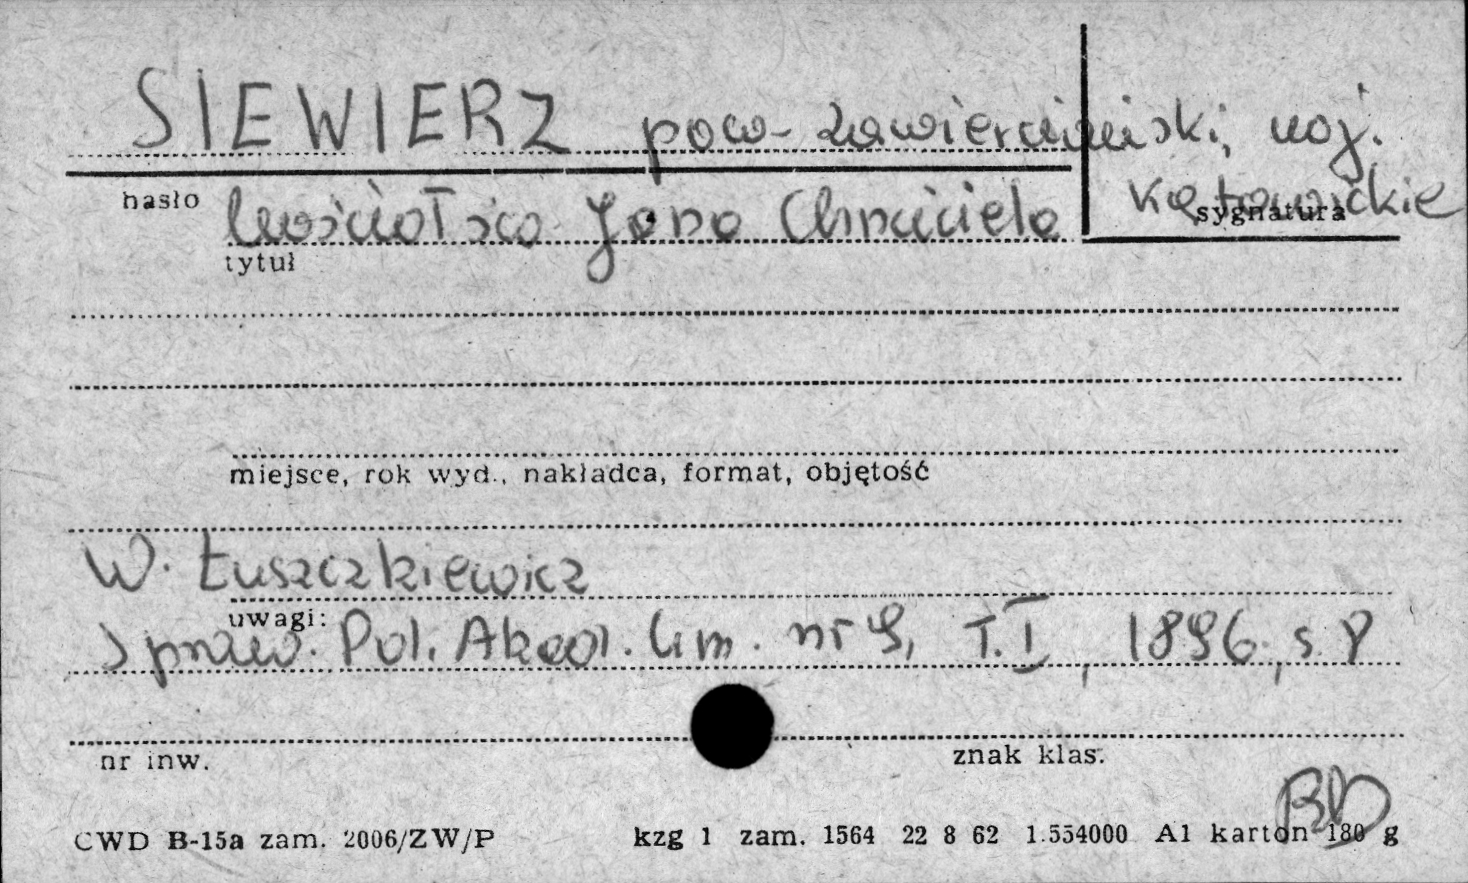 SIEWIERZ pow. zawierciański, woj.
katowickie
hasło
sygnatura
kościół św. Jana Chrzciciela
tytuł
miejsce, rok wyd., nakładca, format, objętość
W. Łuszczkiewicz
uwagi:
Spraw. Pol. Akad. Um. nr 9, T. I, 1896, s. 8
nr inw.
znak klas.
BD
CWD B-15a zam. 2006/ZW/P kzg 1 zam. 1564 22 8 62 1.554000 A1 karton 180 g